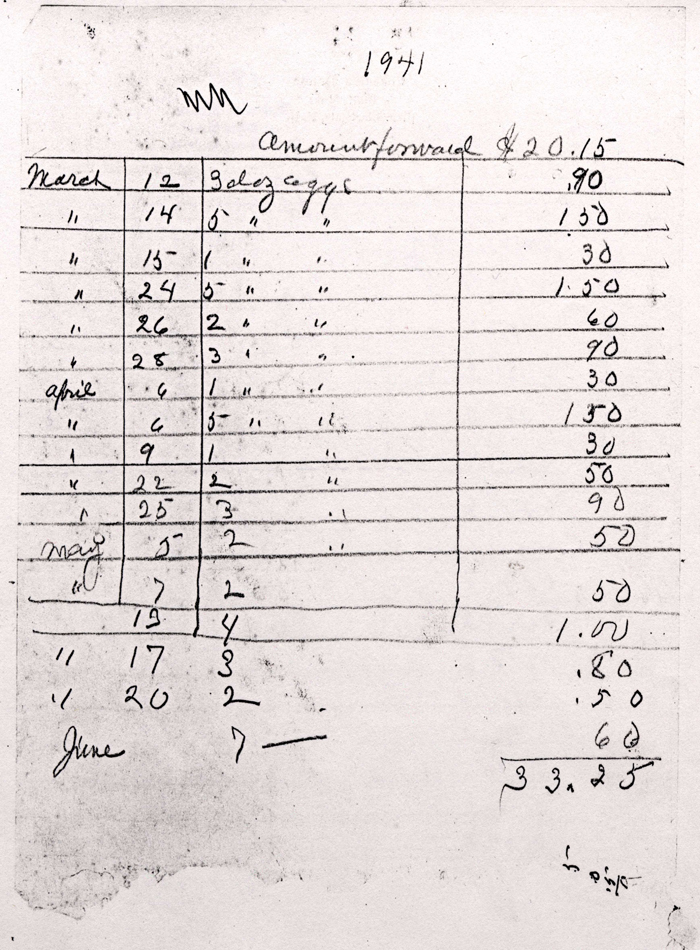 1941
Amount forward $20.15
March 12 3 doz eggs .90
" 14 5 " " 1 50
" 15 1 " " 30
" 24 5 " " 1.50
" 26 2 " " 60
" 28 3 " " 90
April 6 1 " " 30
" 6 5 " " 1 50
" 9 1 " 30
" 22 2 " 50
" 25 3 " 90
May 5 2 " 50
" 7 2 50
13 4 1.00
" 17 3 .80
" 20 2 .50
June 7 — 60
33.25